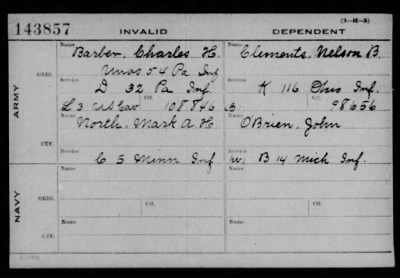 (3-H-3)
143857 INVALID DEPENDENT
ARMY
ORIG.
Name Barber, Charles H.
Unas 54 Pa Inf
Service D 32 Pa Inf
L 3 US Cav Ctf. 108846
Name Clements, Nelson B.
Service K 116 Ohio Inf.
Ctf. 98656
CTF.
Name North, Mark A. H.
Service C 5 Minn Inf
Name O'Brien, John
Service B 14 Mich Inf.
NAVY
ORIG.
Name
Service Ctf.
Name
Service Ctf.
CTF.
Name
Name